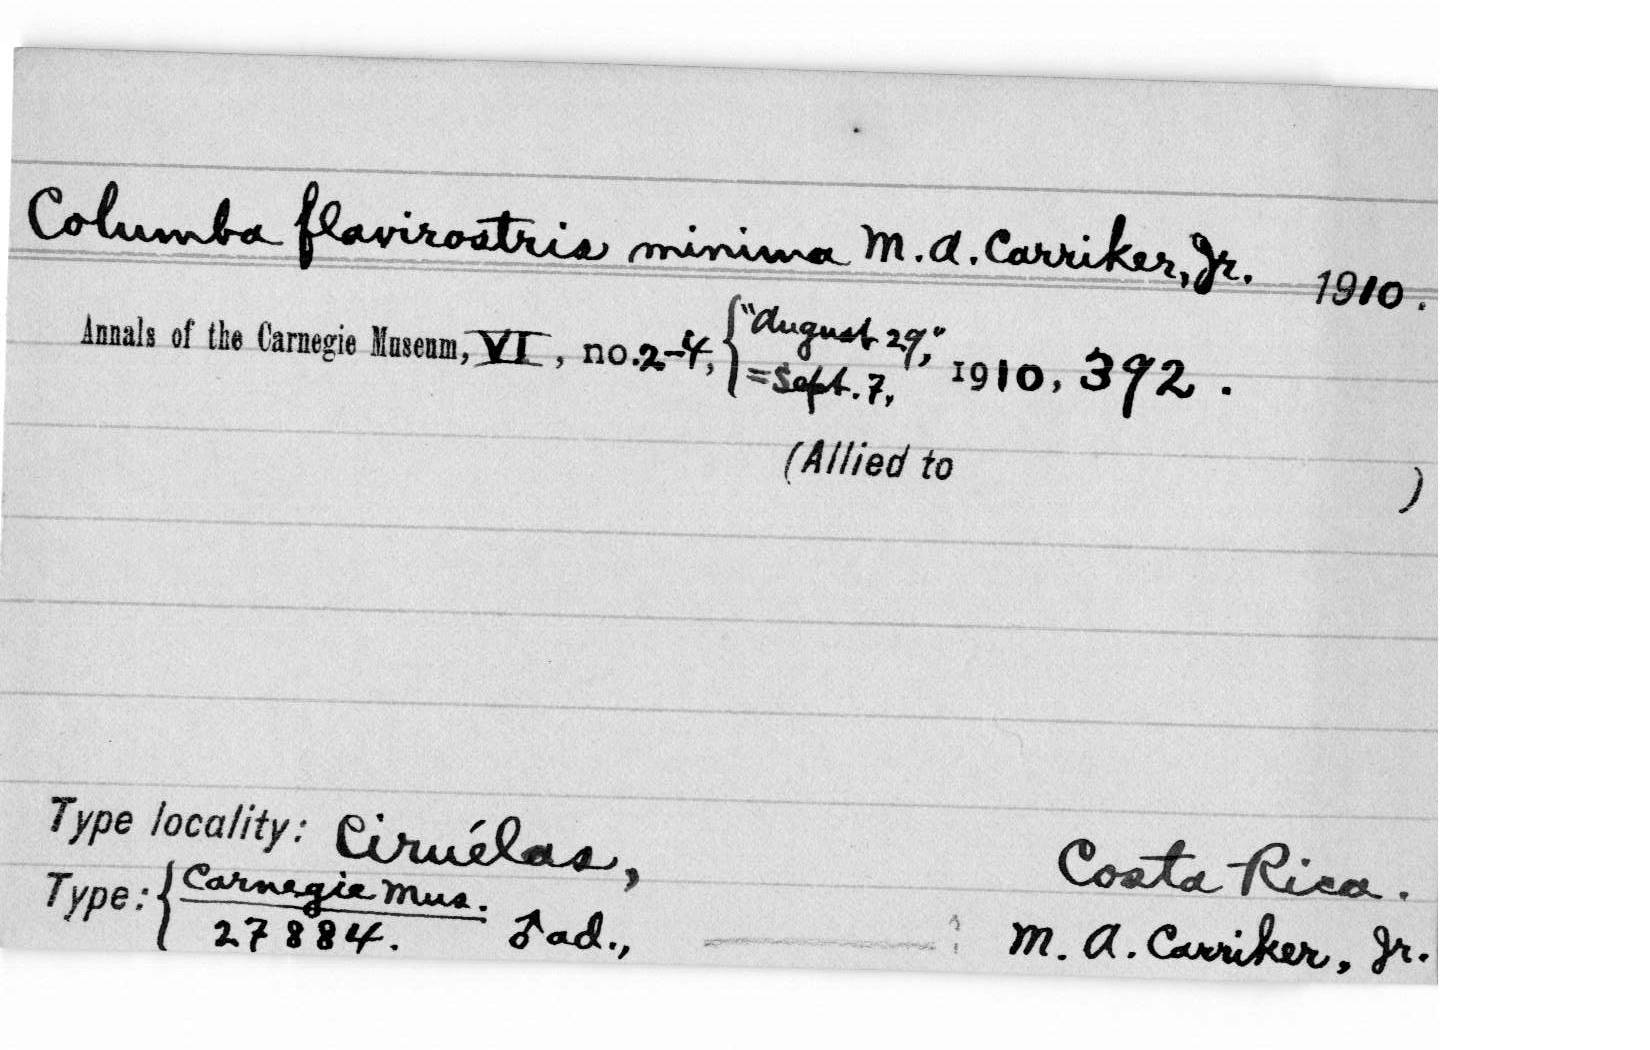 Columba flavirostris minima M. A. Carriker, Jr. 1910.
Annals of the Carnegie Museum, VI, no. 2-4, { "August 29," = Sept. 7, 1910, 392.
(Allied to )
Type locality: Ciruélas, Costa Rica.
Type: { Carnegie Mus. 27884. ♂ ad., : M. A. Carriker, Jr.